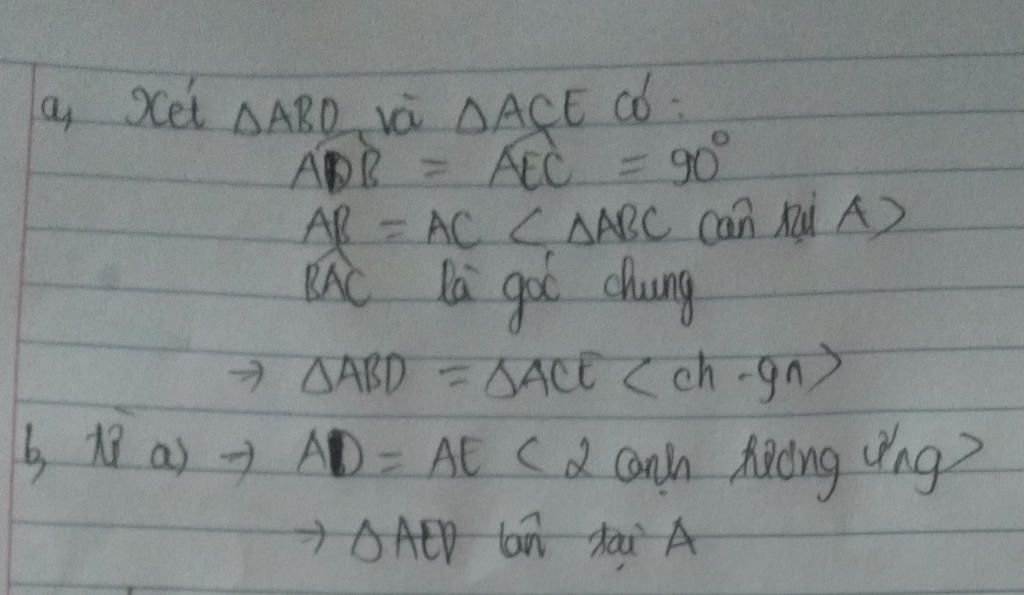 a, Xét ΔABD và ΔACE có:
ADB = AEC = 90°
AB = AC < ΔABC cân tại A >
BAC là góc chung
→ ΔABD = ΔACE < ch - gn >
b, từ a) → AD = AE < 2 cạnh tương ứng >
→ ΔAED cân tại A